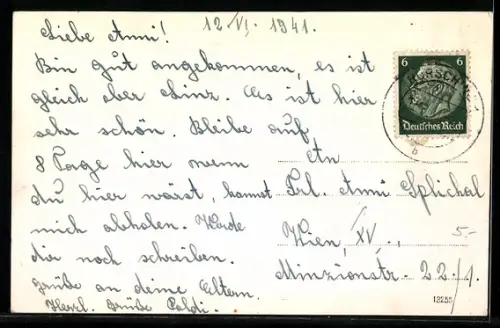 Liebe Anni! 12/VI. 1941.
Bin gut angekommen, es ist
gleich ober Linz. Es ist hier
sehr schön. Bleibe auf
8 Tage hier wenn
du hier wärst, kannst
mich abholen. Werde
dir noch schreiben.
grüße an deine Eltern.
Herzl. grüße Poldi.
6 6
Deutsches Reich
An
Frl. Anni Splichal
Wien, XV.,
5-
22/1.
12255